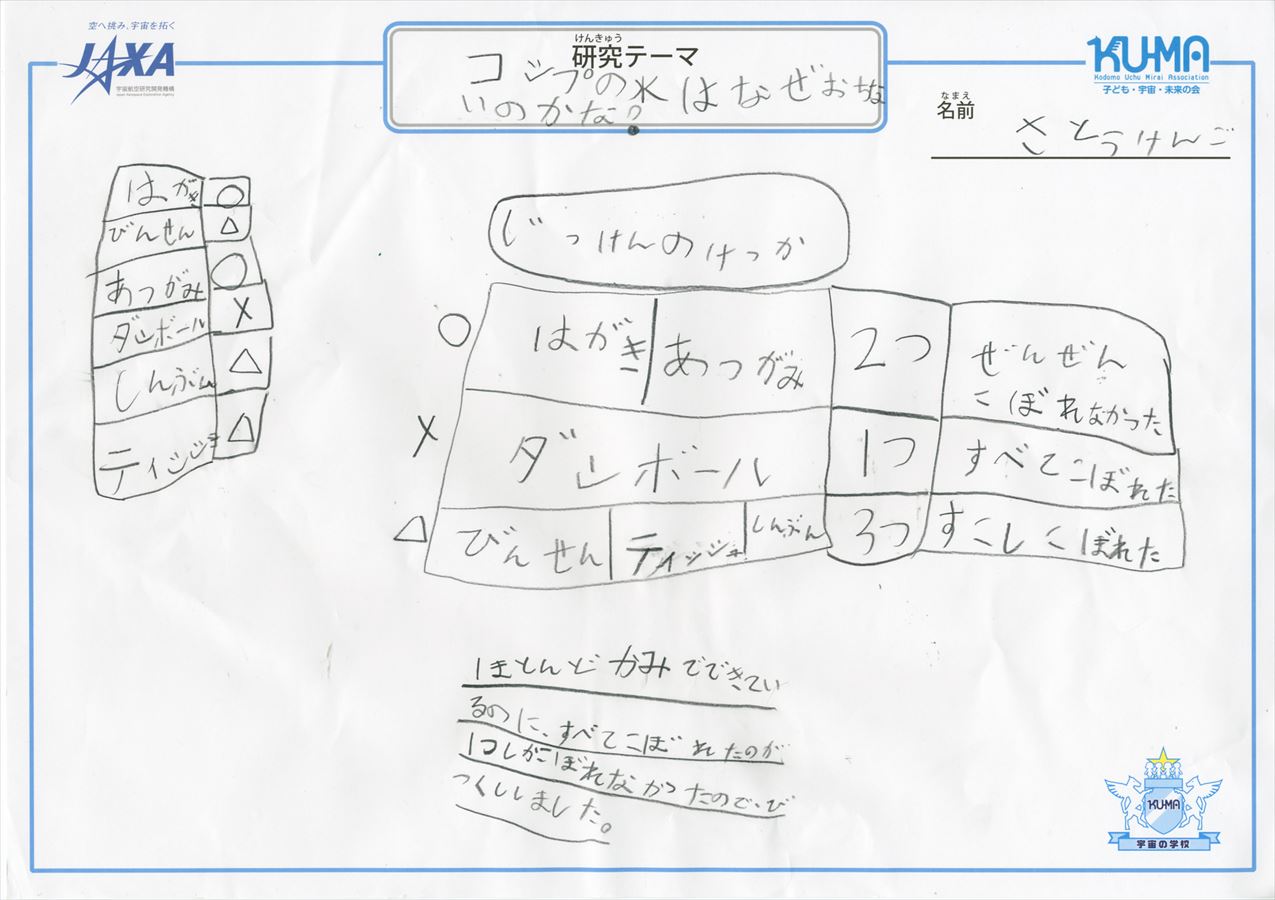 空へ挑み、宇宙を拓く
JAXA
宇宙航空研究開発機構
Japan Aerospace Exploration Agency
けんきゅう
研究テーマ
コップの水はなぜおちな
いのかな?
KU-MA
Kodomo Uchu Mirai Association
子ども・宇宙・未来の会
なまえ
名前
さとうけんご
はがき ○
びんせん △
あつがみ ○
ダンボール ×
しんぶん △
ティッシュ △
じっけんのけっか
○ はがき あつがみ 2つ ぜんぜん
こぼれなかった
× ダンボール 1つ すべてこぼれた
△ びんせん ティッシュ しんぶん 3つ すこしこぼれた
ほとんどかみでできてい
るのに、すべてこぼれたのが
1つしかこぼれなかったので、び
っくりしました。
KU-MA
宇宙の学校